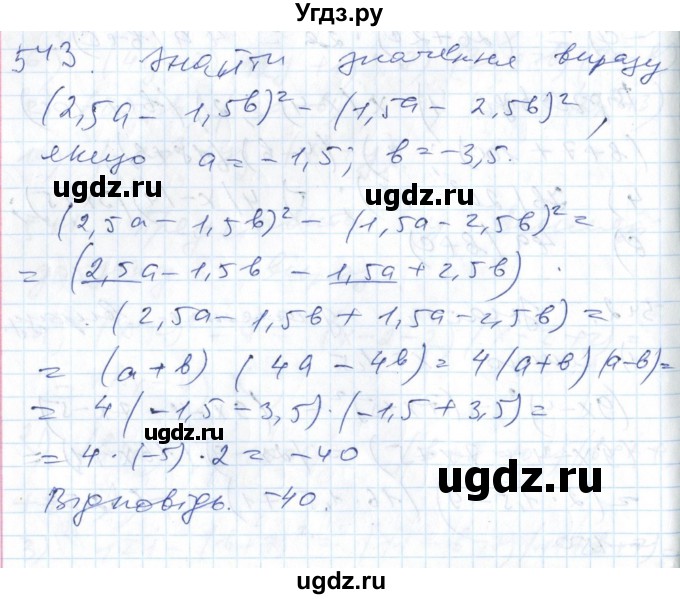 Угдз.ру
543. Знайти значення виразу
(2,5a - 1,5b)² - (1,5a - 2,5b)²,
якщо a = -1,5; b = -3,5.
ugdz.ru ugdz.ru
(2,5a - 1,5b)² - (1,5a - 2,5b)² =
= (2,5a - 1,5b - 1,5a + 2,5b) ·
· (2,5a - 1,5b + 1,5a - 2,5b) =
= (a + b) (4a - 4b) = 4(a+b)(a-b) =
= 4(-1,5 - 3,5)·(-1,5 + 3,5) =
ugdz.ru
= 4 · (-5) · 2 = -40
ugdz.ru
Відповідь. -40.
ugdz.ru